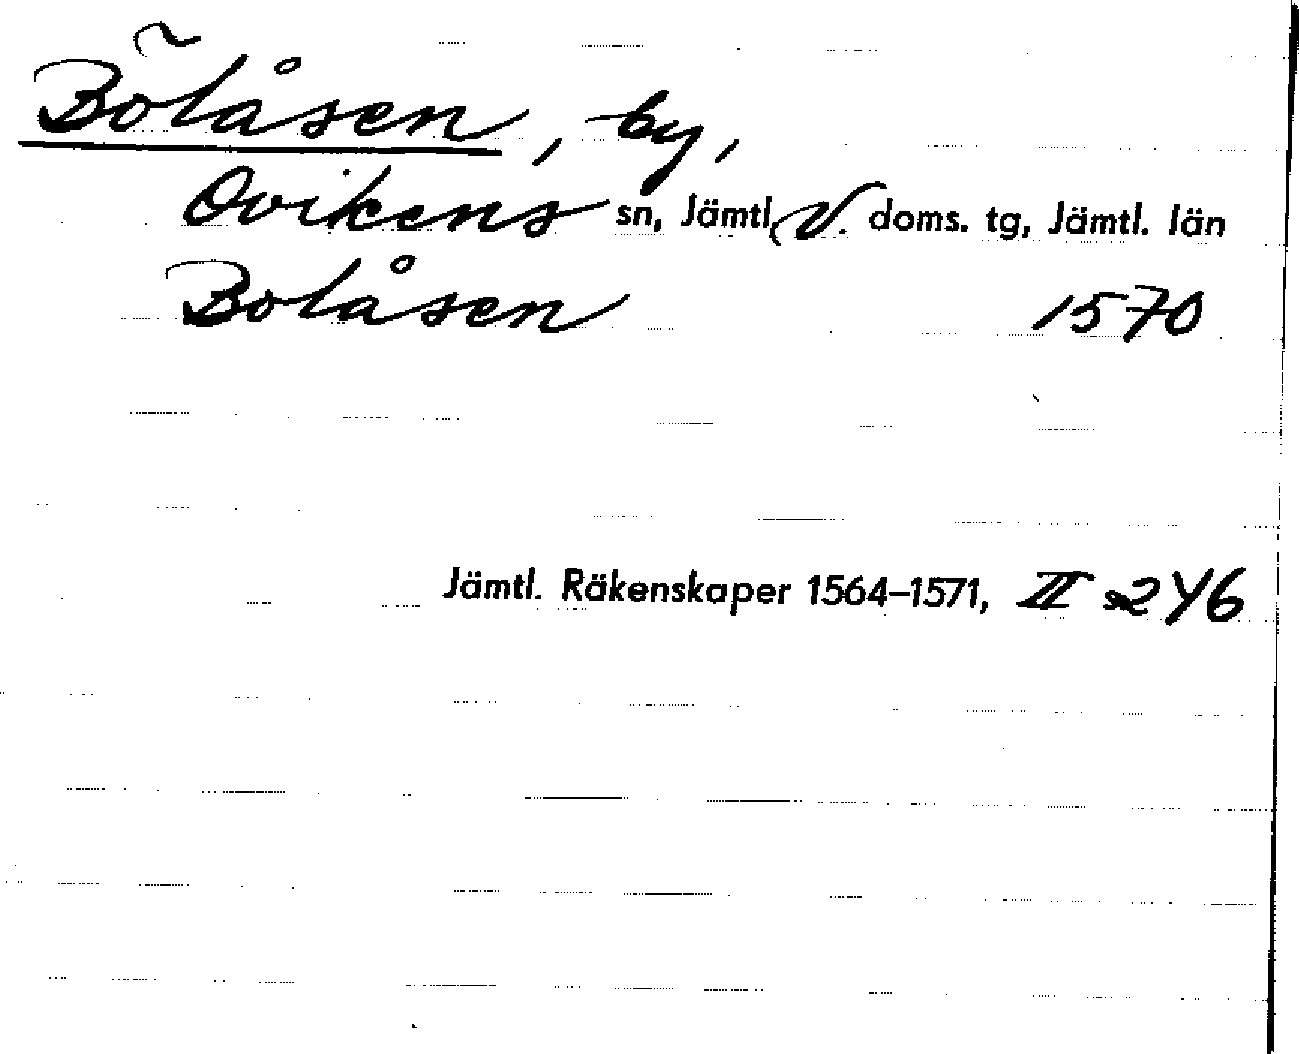 Bölåsen, by,
Ovikens sn, Jämtl. V. doms. tg, Jämtl. län
Bolåsen 1570
Jämtl. Räkenskaper 1564–1571, II s 246